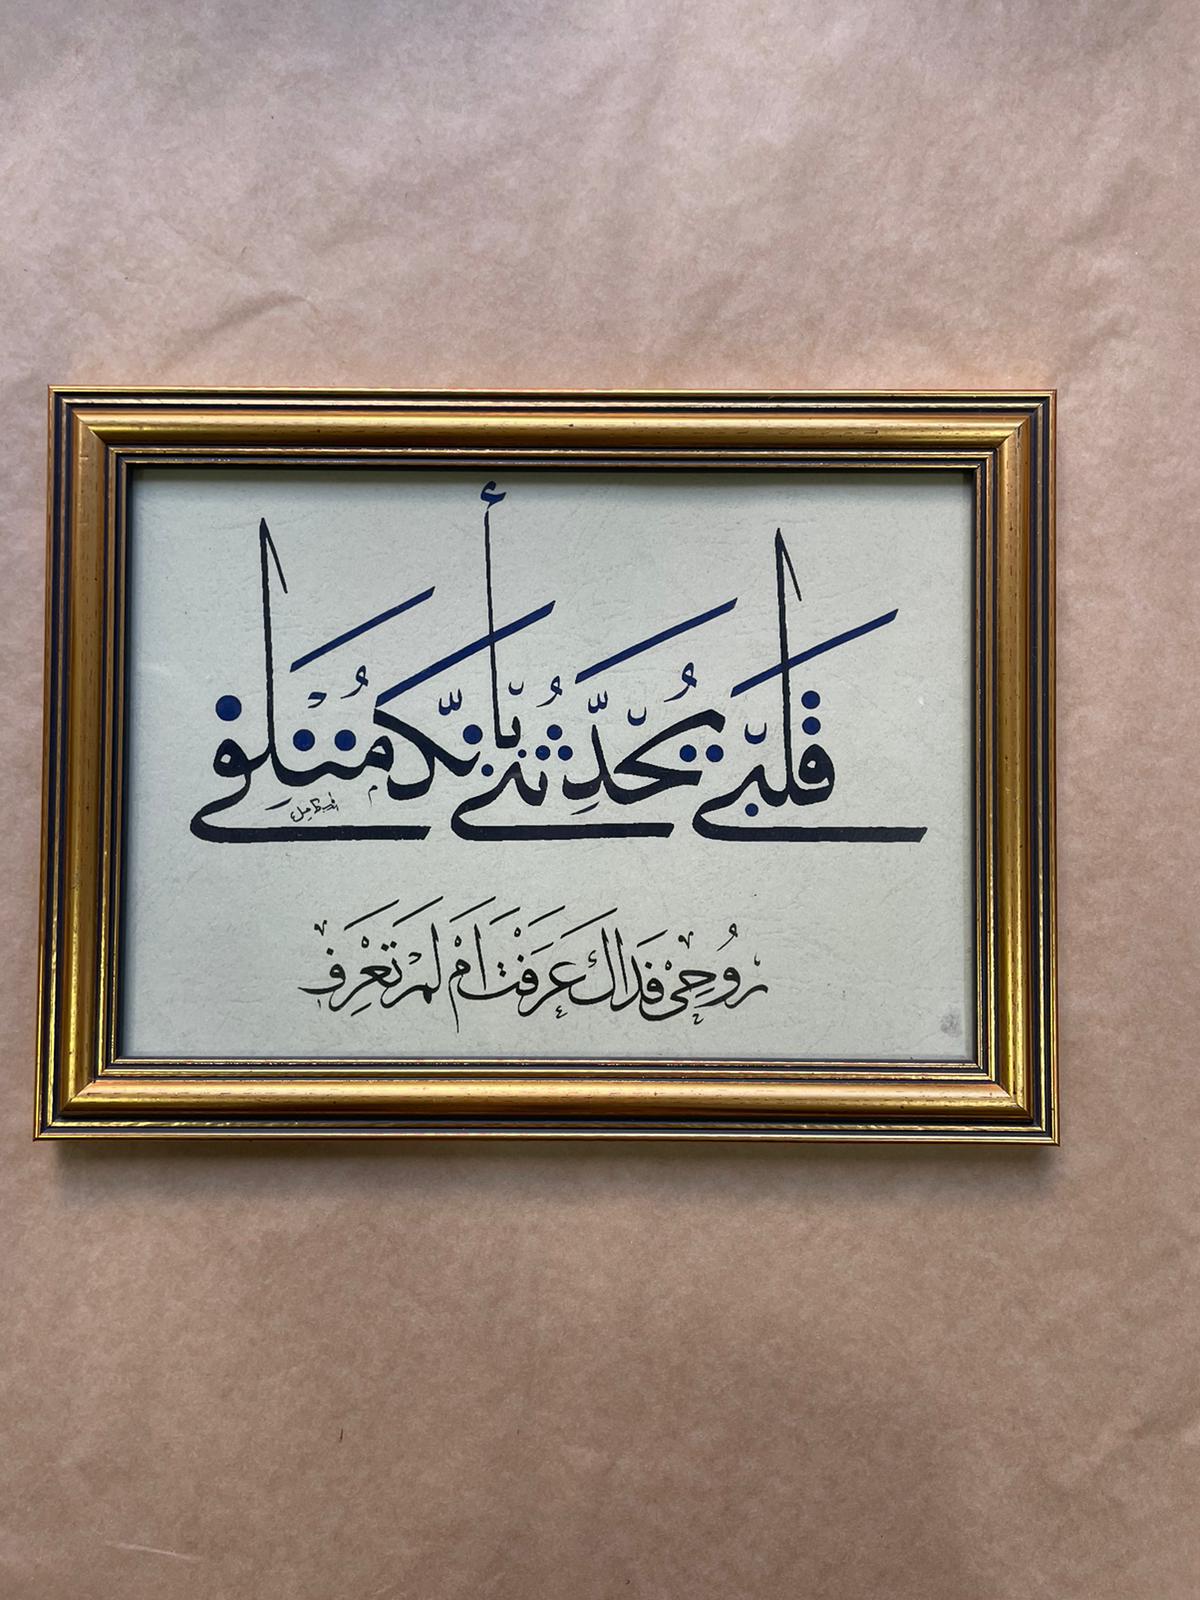 قَلْبِي يُحَدِّثُنِي بِأَنَّكَ مُتْلِفِي
رُوحِي فَدَاكَ عَرَفْتَ أَمْ لَمْ تَعْرِفِ